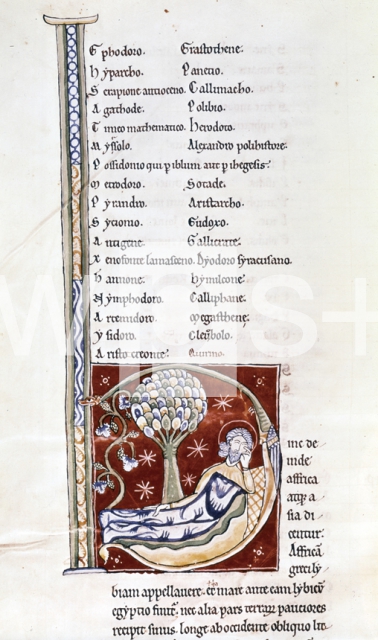 Ephodoro. Erastothene.
Hyparcho. Panetio.
Serapione antioceno. Callimacho.
Agathode. Polibio.
Timeo mathematico. Herodoto.
Alexandro polihistore.
Possidonio qui
Metrodoro. Sotade.
Pyrandro. Aristarcho.
Eudoxo.
Antigene
Xenofonte lamaseno. Dyodoro syracusano.
Hannone. Hymilcone.
Nymphodoro. Calliphane.
Artemidoro. Megasthene.
Ysidoro. Cleobolo.
Aristo creonte. Quirino.
inde
affrica
atq; a
sia di
centur.
Affricā
greci ly
biam appellauere. & mare ante eam lybicū
egyptio finit̄. nec alia pars terrarū pauciores
recipit sinus. longe ab occidente obliquo lito